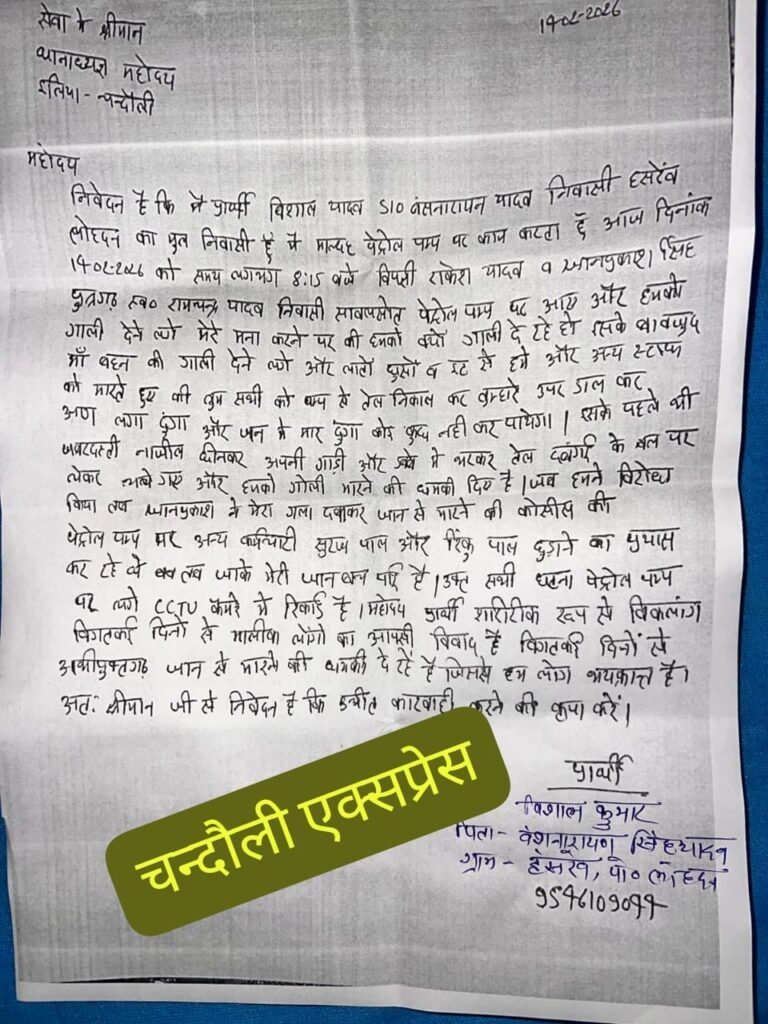 14-02-2026
सेवा मे श्रीमान
थानाध्यक्ष महोदय
इलिया - चन्दौली
महोदय
निवेदन है कि मै प्रार्थी विशाल यादव S/O वंसनारायन यादव निवासी हसरेव
लोहदन का मुल निवासी हूँ मै मालदह पेट्रोल पम्प पर काम करता हूँ आज दिनांक
14-02-2026 को समय लगभग 8:15 बजे विपक्षी राकेश यादव व ज्ञानप्रकाश सिंह
पुत्रगढ़ स्व० रामचन्द्र यादव निवासी पेट्रोल पम्प पर आए और हमको
गाली देने लगे मेरे मना करने पर की हमको क्यों गाली दे रहे हो इसके बावजुद
माँ बहन की गाली देने लगे और लातो घुसो व ईट से हमे और अन्य स्टाफ
को मारते हुए की तुम सभी को पम्प से तेल निकाल कर तुम्हारे उपर डाल कर
आग लगा दुंगा और जान मे मार दुंगा कोइ कुछ नही कर पायेगा। इसके पहले भी
जबरदस्ती नाजील छीनकर अपनी गाडी और डब्बे मे भरकर तेल दबंगई के बल पर
लेकर चले गए और हमको गोली मारने की धमकी दिए है। जब हमने विरोध
किया तब ज्ञानप्रकाश ने मेरा गला दबाकर जान से मारने की कोसीस की
पेट्रोल पम्प पर अन्य कर्मचारी सुरज पाल और रिंकु पाल छुड़ाने का प्रयास
कर रहे थे तब जाके मेरी जान बच पाई है। उक्त सभी घटना पेट्रोल पम्प
पर लगे CCTV कैमरे मे रिकार्ड है। महोदय प्रार्थी शारिरीक रूप से विकलांग
विगतकई दिनो से मालीक लोगो का आपसी विवाद है विगतकई दिनों से
अभीयुक्तगढ़ जान से मारने की धमकी दे रहें है जिससे हम लोग भयक्रान्त है।
अतः श्रीमान जी से निवेदन है कि उचीत कारवाही करने की कृपा करें।
प्रार्थी
विशाल कुमार
पिता - वंशनारायण सिंह यादव
ग्राम - हसरेव, पो० लोहदन
9546109044
चन्दौली एक्सप्रेस